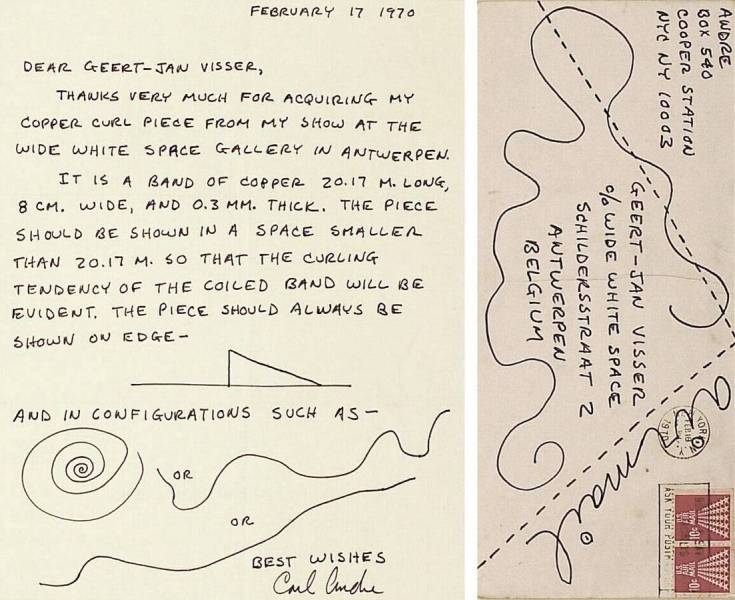 FEBRUARY 17 1970
DEAR GEERT-JAN VISSER,
THANKS VERY MUCH FOR ACQUIRING MY
COPPER CURL PIECE FROM MY SHOW AT THE
WIDE WHITE SPACE GALLERY IN ANTWERPEN.
IT IS A BAND OF COPPER 20.17 M. LONG,
8 CM. WIDE, AND 0.3 MM. THICK. THE PIECE
SHOULD BE SHOWN IN A SPACE SMALLER
THAN 20.17 M. SO THAT THE CURLING
TENDENCY OF THE COILED BAND WILL BE
EVIDENT. THE PIECE SHOULD ALWAYS BE
SHOWN ON EDGE—
AND IN CONFIGURATIONS SUCH AS—
OR
OR
BEST WISHES
Carl Andre
ANDRE
BOX 540
COOPER STATION
NYC NY 10003
GEERT-JAN VISSER
c/o WIDE WHITE SPACE
SCHILDERSSTRAAT 2
ANTWERPEN
BELGIUM
air mail
1970
ASK YOUR POST
U.S. AIR MAIL
10¢
U.S. AIR MAIL
10¢